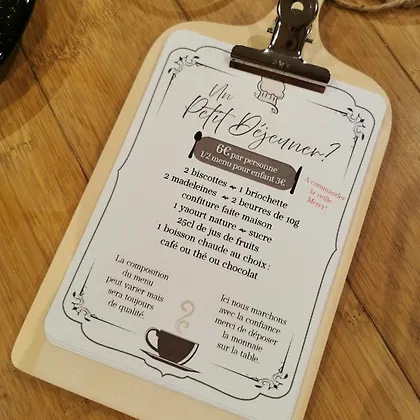 Un
Petit Déjeuner?
6€ par personne
1/2 menu pour enfant 3€
À commander
la veille
Merci!
2 biscottes ~ 1 briochette
2 madeleines ~ 2 beurres de 10g
confiture faite maison
1 yaourt nature ~ sucre
25cl de jus de fruits
1 boisson chaude au choix :
café ou thé ou chocolat
La composition
du menu
peut varier mais
sera toujours
de qualité.
Ici nous marchons
avec la confiance
merci de déposer
la monnaie
sur la table.